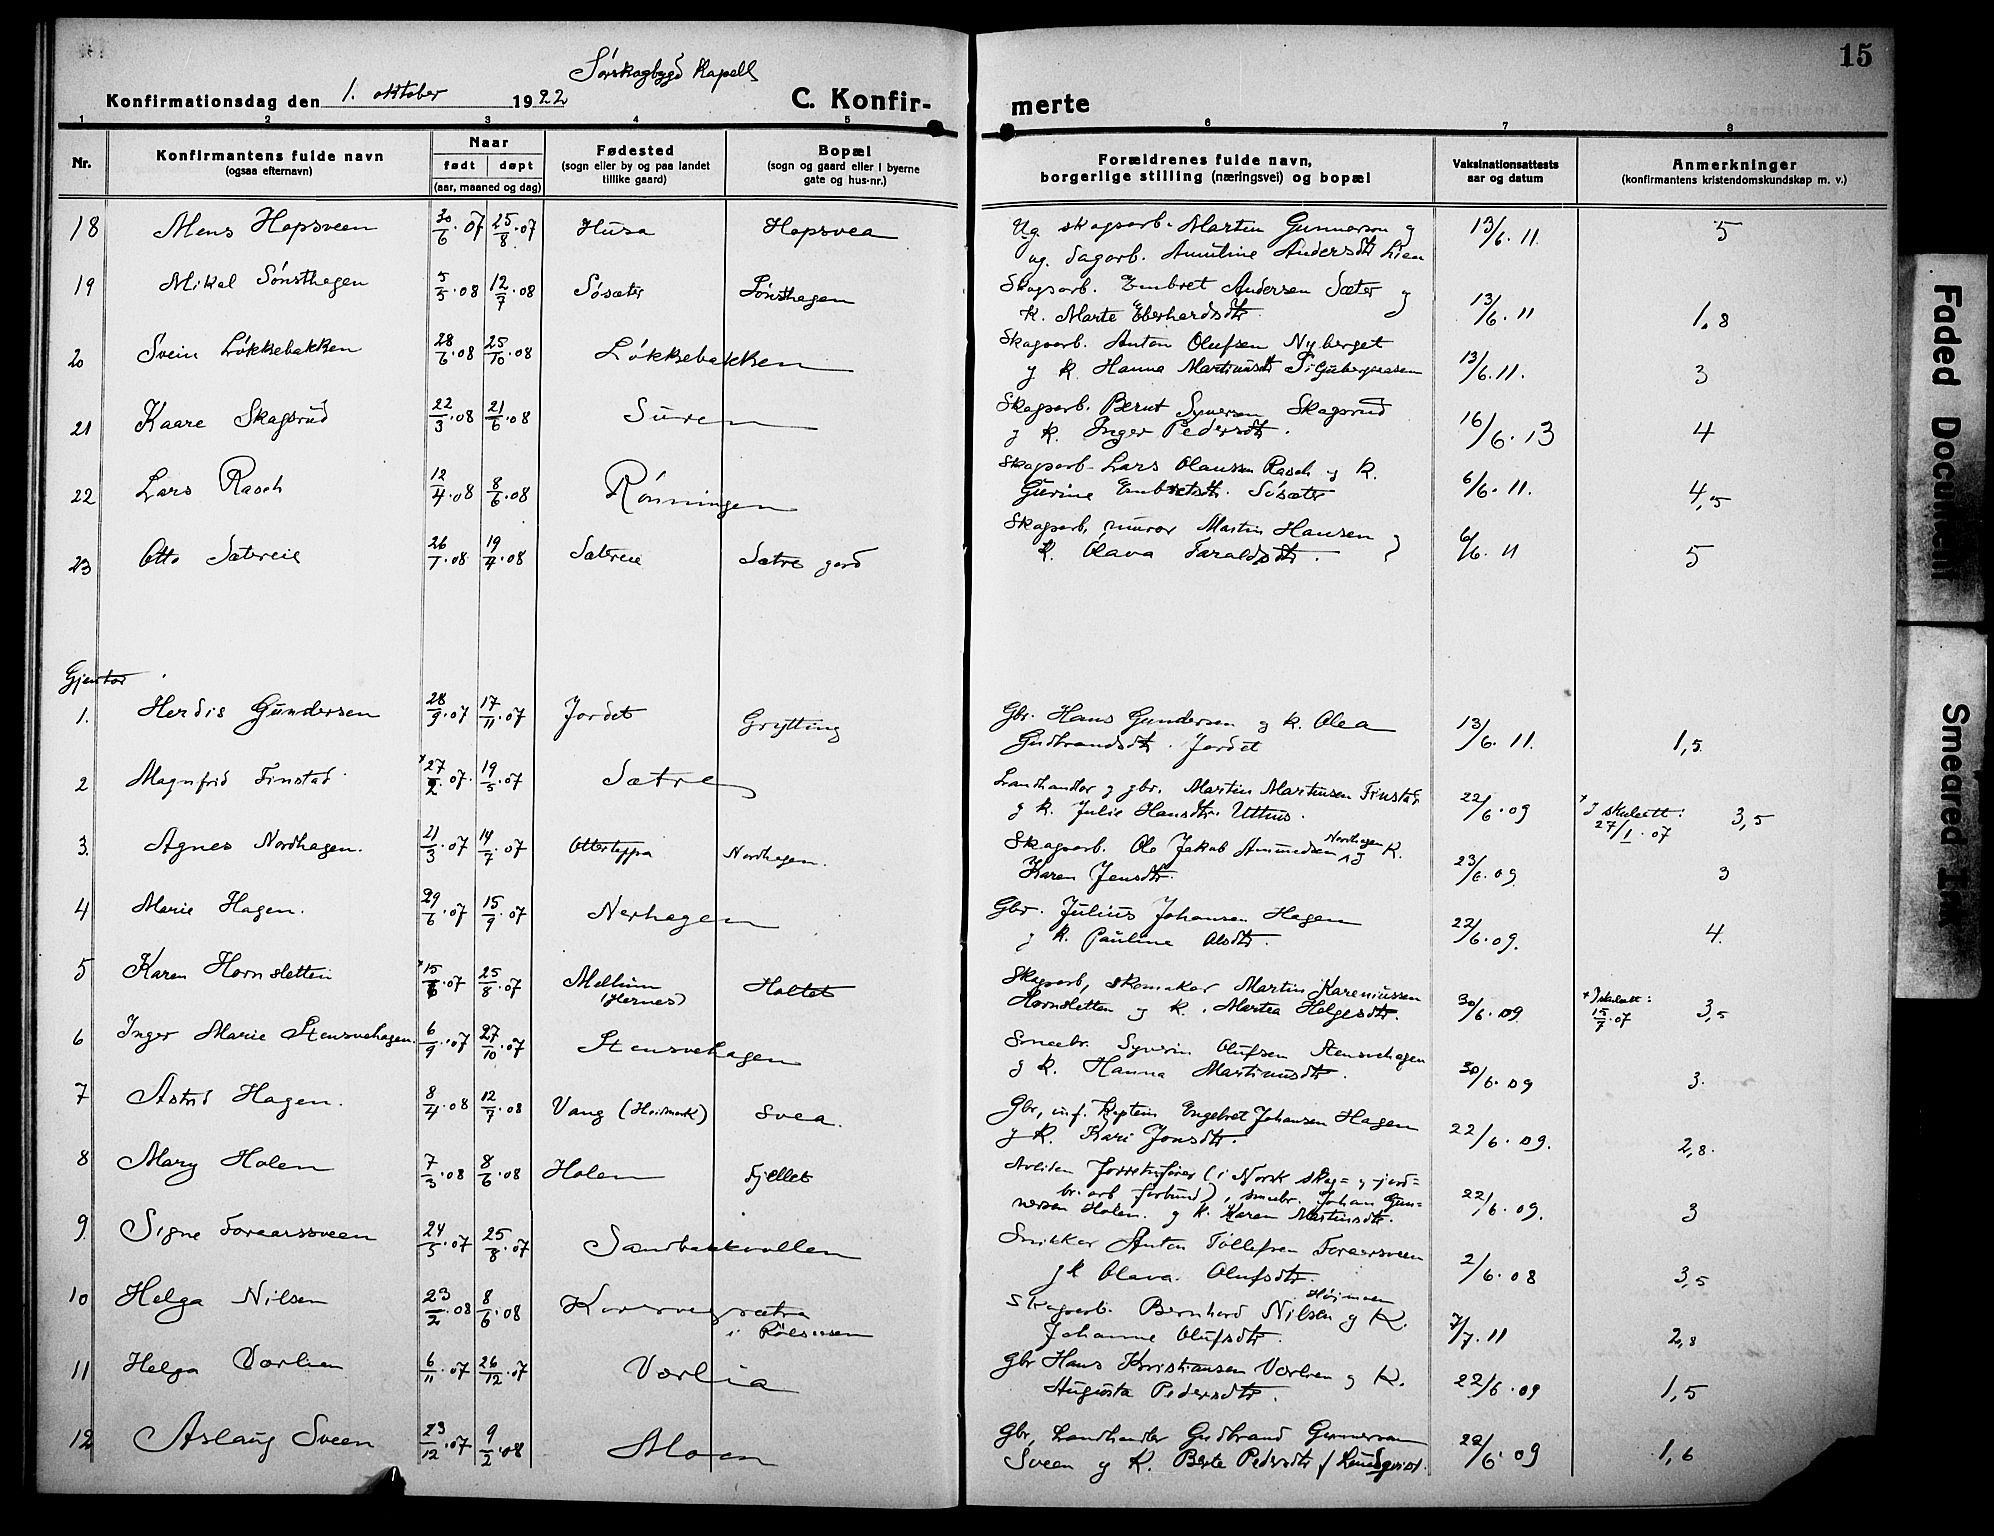 15
Sørskogbygd Kapell
Konfirmationsdag den 1. oktober 1922 C. Konfir- merte
1 2 3 4 5 6 7 8
Nr. Konfirmantens fulde navn (ogsaa efternavn) Naar født døpt (aar, maaned og dag) Fødested (sogn eller by og paa landet tillike gaard) Bopæl (sogn og gaard eller i byerne gate og hus-nr.) Forældrenes fulde navn, borgerlige stilling (næringsvei) og bopæl Vaksinationsattests aar og datum Anmerkninger (konfirmantens kristendomskundskap m. v.)
18 Mens Hopsveen 30/6.07 25/8.07 Husa Hopsvea Ug. skogsarb. Martin Gunnarson og
ug. dagarb. Anuline Andersdtr. Lien 13/6.11. 5
19 Mikal Sønsthagen 5/5.08 12/7.08 Søsæter Sønsthagen Skogsarb. Embret Andersen Sæter og
K. Marte Eberhardsdtr. 13/6.11 1,8
20 Svein Løkkebakken 28/6.08 25/10.08 Løkkebakken Skogsarb. Anton Olufsen Nyberget
og K. Hanna Martinusdtr. 13/6.11. 3
21 Kaare Skogsrud 22/3.08 21/6.08 Suren Skogsarb. Bernt Syversen Skogsrud
og K. Inger Pedersdtr. 16/6.13 4
22 Lars Rasch 12/4.08 8/6.08 Rønningen Skogsarb. Lars Olaussen Rasch og K.
Gurine Embretsdtr. Søsæter 6/6.11. 4,5
23 Otto Sætereie 26/1.08 19/4.08 Sætereie Sætre gord Skogsarb, murar Martin Hansen og
K. Olava Taraldsdtr. 6/6.11 5
Gjentor
1. Herdis Gundersen 28/9.07 17/11.07 Jordet Grytting Gbr. Hans Gundersen og K. Olea
Gudbrandsdtr. Jordet 13/6.11. 1,5
2 Magnfrid Finstad + 27/2.07. 19/5.07 Sætre Landhandlar og gbr. Martin Martinsen Finstad
og K. Julie Hansdtr. Uthus. 22/6.09 + I skuleatt: 27/1.07 3,5
3. Agnes Nordhagen. 21/3.07 14/7.07 Ottertoppa Nordhagen. Skogsarb. Ole Jakob Amundsen Nordhagen og K.
Karen Jensdtr. 23/6.09. 3
4 Marie Hagen. 29/6.07 15/9.07 Nerhagen Gbr. Julius Johansen Hagen
og K. Pauline Olsdtr. 22/6.09. 4.
5 Karen Hornsletten + 15/6.07 25/8.07 Mellum (Hernes) Holtet Skogsarb, skomakar Martin Kareniussen
Hornsletten og K. Martea Helgesdtr. 30/6.09. + I skuleatt: 15/7.07 3,5
6 Inger Marie Stensvehagen. 6/9.07 27/10.07 Stensvehagen Smaabr. Syverin Olufsen Stensvehagen
og K. Hanna Martinusdtr. 30/6.09 3.
7 Astrid Hagen. 8/4.08 12/7.08 Vang (Heidmark) Svea. Gbr, inf. Kaptein Engebret Johansen Hagen
og K. Kari Jonsdtr. 22/6.09. 2,8.
8 Mary Holen 7/3.08 8/6.08 Holen Fjellet Avliden forretnfører (i Norsk skog= og jord=
br. arb forbund), smaabr. Johan Gun-
nersen Holen. og K. Karen Martinsdtr. 22/6.09. 3
9. Signe Foraarssveen 24/5.07 25/8.07 Sandbakkvollen Snikkar Anton Tollefsen Foraarsveen
og K Olava. Olufsdtr. 2/6.08 3,5
10 Helga Nilsen 23/2.08 8/6.08 Korsvegsætra
i Røisaasen Skogsarb. Bernhard Nilsen Høimoen og K.
Johanne Olufsdtr. 7/7.11 2,8
11 Helga Vorlien 6/11.07 26/12.07 Vorlia Gbr Hans Kristiansen Vorlien og K.
Augusta Pedersdtr. 22/6.09 1,5
12 Aslaug Sveen 23/12.07 9/2.08 Moen Gbr, Landhandlar Gudbrand Gunnersen
Sveen og K. Berte Pedersdtr f. Lundqvist. 22/6.09 1,6
Faded Document
Smeared Ink